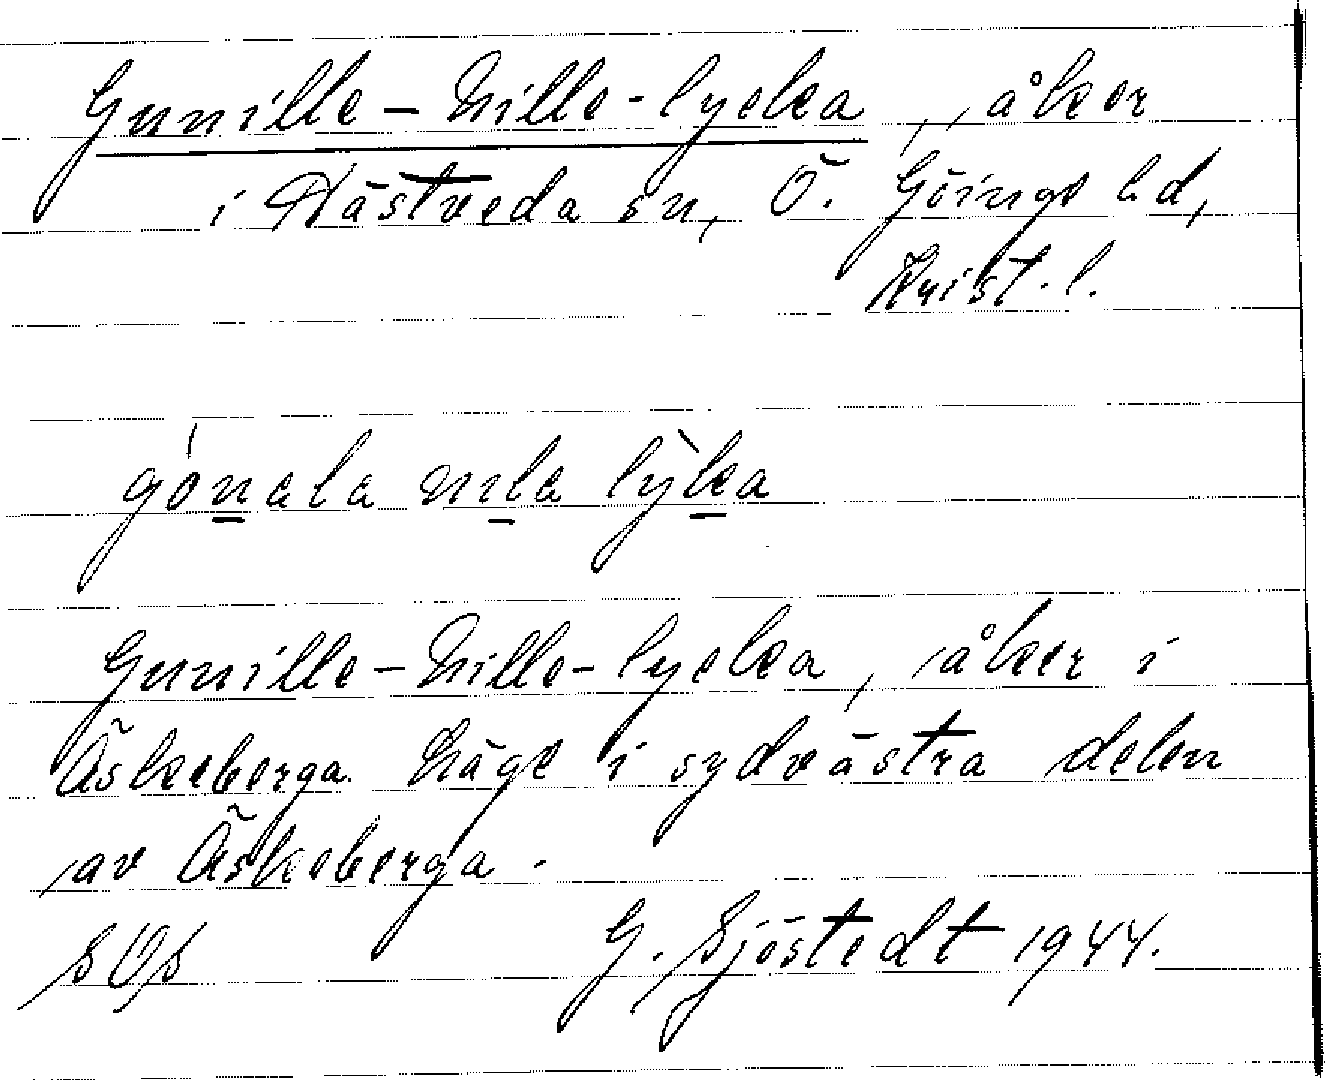 Gunille-Nille-lycka, åker
i Hästveda sn, Ö. Göinge hd,
Krist. l.
Gunille-Nille-lycka, åker i
Äskeberga. Läge i sydvästra delen
av Äskeberga.
SOS G. Sjöstedt 1944.